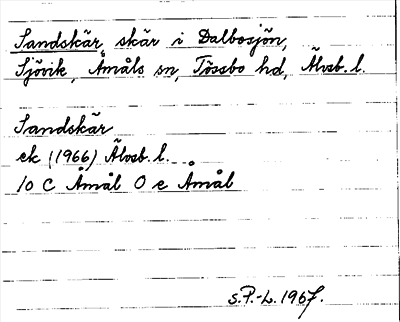 Sandskär, skär i Dalbosjön,
Sjövik, Åmåls sn, Tössbo hd, Älvsb. l.
Sandskär
ek (1966) Älvsb. l.
10 C Åmål O e Åmål
S.P.-L. 1967.